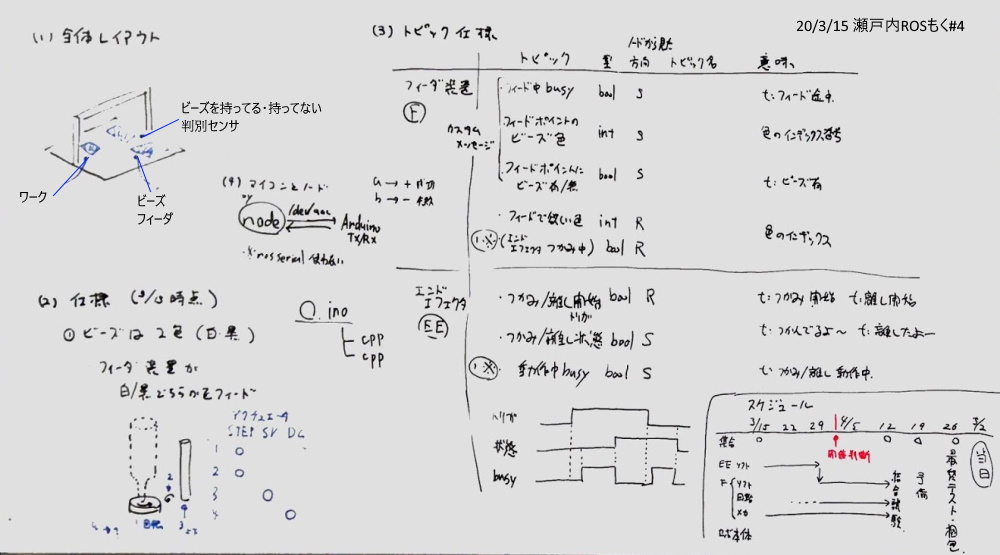 20/3/15 瀬戸内ROSもく#4
(1) 全体レイアウト
ビーズを持ってる・持ってない
判別センサ
ワーク
ビーズ
フィーダ
(2) 仕様 (3/15時点)
① ビーズは2色 (白・黒)
フィーダ装置が
白/黒どちらかをフィード
アクチュエータ
STEP SV DC
1 ○
2 ○
3 ○
4 ○
(4) マイコンとノード
node /dev/ Arduino
Tx/Rx
※rosserial 使わない
a → +
b → -
○.ino
cpp
cpp
(3) トピック仕様
ノードから見た
トピック 型 方向 トピック名 意味
フィーダ装置
F
カスタム
メッセージ
・フィード中 busy bool S t:フィード途中
フィードポイントの
ビーズ色 int S 色のインデックス番号
・フィードポイントに
ビーズ有/無 bool S t:ビーズ有
・フィードで欲しい色 int R 色のインデックス
※(エンド
エフェクタ つかみ中) bool R
エンド
エフェクタ
EE
・つかみ/離し開始 bool R t:つかみ開始 t:離し開始
トリガ
・つかみ/離し状態 bool S t:つかんでるよ〜 t:離したよー
※ 動作中busy bool S t:つかみ/離し動作中
トリガ
状態
busy
スケジュール
3/15 22 29 4/5 12 19 26 5/2
集合 ○ ○ ○ ○
当日
EE ソフト
F ソフト
回路
メカ
ロボ本体
結合試験
予備
最終テスト・梱包